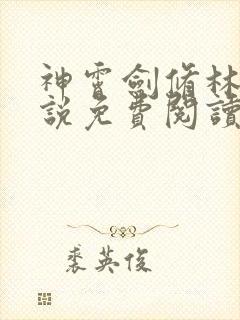 神霄劍脩林
說免費閱讀
裘英俊